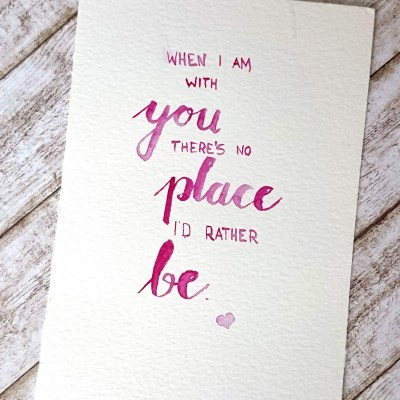 WHEN I AM
WITH
you
THERE'S NO
place
I'D RATHER
be.